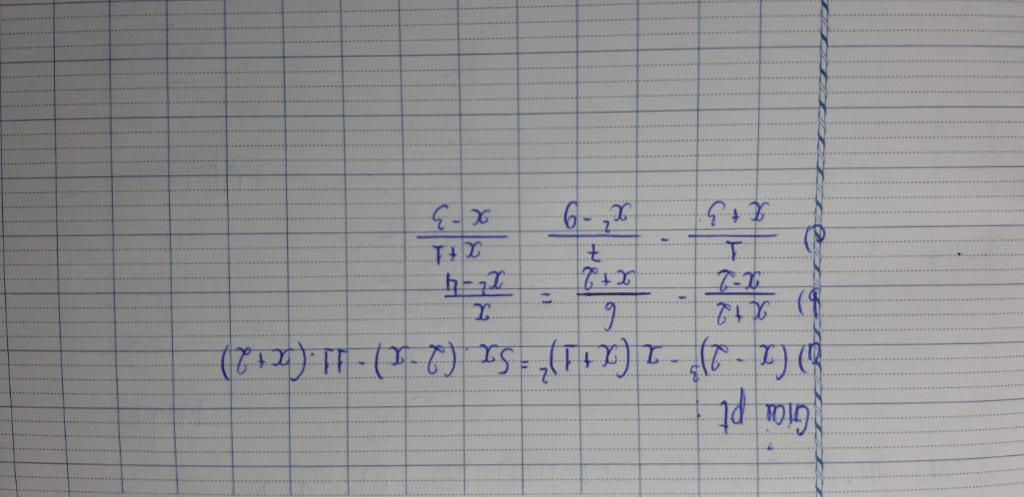 Giải pt :
a) (x - 2)³ - x (x+1)² = 5x. (2-x) - 11. (x+2)
b) \frac{x+2}{x-2} - \frac{6}{x+2} = \frac{x}{x²-4}
c) \frac{1}{x+3} - \frac{7}{x²-9} \frac{x+1}{x-3}